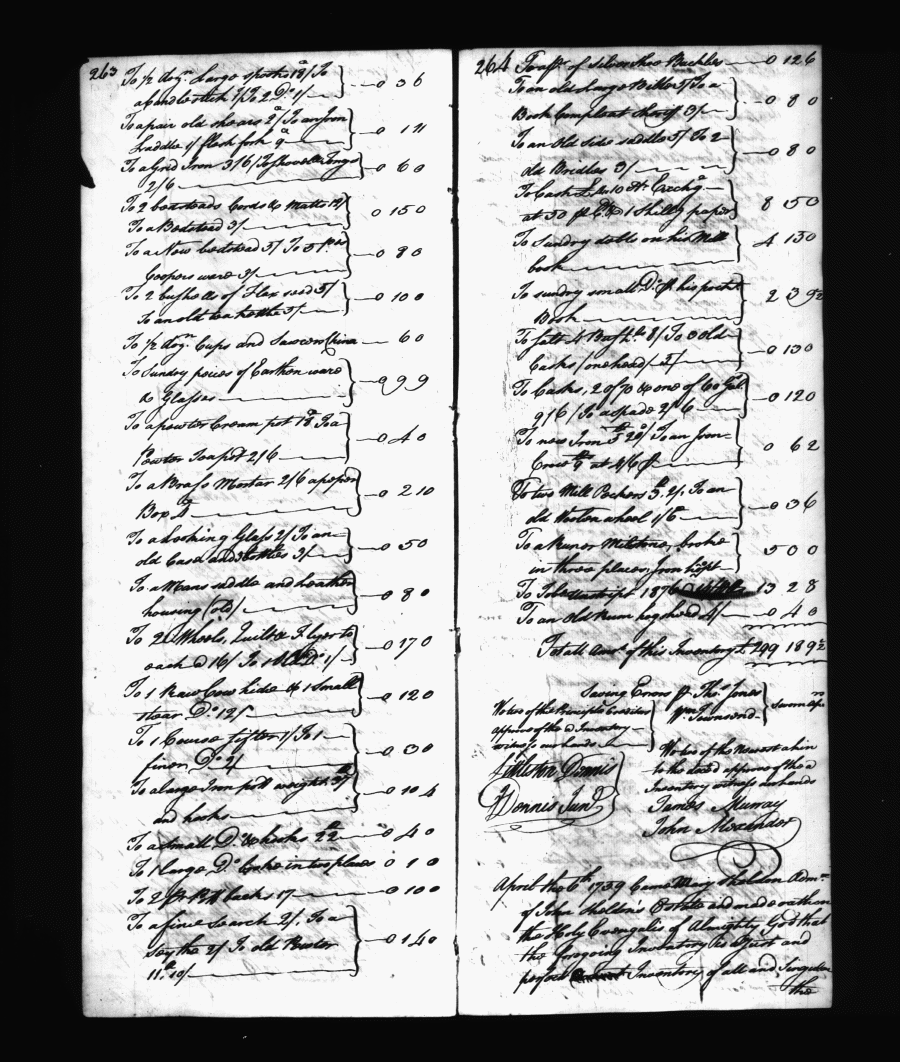 263
To 1/2 dozn. Large spoons 18d/ To
a Candlestick 1/ To 2 Do. 1/ — 0 3 6
To a pair old shears 2d/ To an Iron
Laddle 1/ flesh fork 9d — 0 1 11
To a Grid Iron 3/6/ To Tongs
2/6 — 0 6 0
To 2 bedsteads Cords & Matts 12/
To a Bedstead 3/ — 0 15 0
To a New bedstead 3/ To 5 ps.
Coopers ware 3/ — 0 8 0
To 2 bushells of Flex seed 5/
To an old tea kettle 5/ — 0 10 0
To 1/2 dozn. Cups and Sawcers China — 6 0
To Sundry peices of Earthen ware
& Glasses — 0 9 9
To a pewter Cream pot 18d To a
Pewter Teapot 2/6 — 0 4 0
To a Brass Mortar 2/6 a pepper
Box 4d — 0 2 10
To a Looking Glass 2/ To an
old Case and bottles 3/ — 0 5 0
To a Mans saddle and leather
housing (old) — 0 8 0
To 2 Wheels, Quills & Flyer to
each @ 16/ To 1 Do. 1/ — 0 17 0
To 1 Raw Cow hide & 1 Small
stear Do. 12/ — 0 12 0
To 1 Course sifter 1/ To 1
finer Do. 2/ — 0 3 0
To a large Iron pott weight
and hooks — 0 10 4
To a small Do. & hooks 22lb — 0 4 0
To 1 large Do. broke in two places 0 1 0
To 2 backs 17 — 0 10 0
To a fine search 2/, To a
scythe 2/ To old Pewter
11lb 10/ — 0 14 0
264 To a pr. of Silver shoe Buckles — 0 12 6
To an old Large Bible 5/ To a
Book Compleat Sheriff 3/ — 0 8 0
To an Old Side saddle 5/ To 2
old Bridles 3/ — 0 8 0
To Cash Exchga.
at 50 & 1 Shillg paper 8 15 0
To Sundry debts on his Mill
book 4 13 0
To sundry small Do. pr his pocket
Book — 2 3 9½
To salt 4 Bushls. 8/ To 3 old
Casks (one head) 5/ — 0 13 0
To Casks, 2 of 70 & one of 60 Gal.
9/6/ To a spade 2/6 — 0 12 0
To new Iron 20/ To an Iron
Crow at — 0 6 2
To two Mill Peckers 2/, To an
old Woolen wheel 1/6 — 0 3 6
To a Runer Milstone, broke
in three places, Iron hoopt 5 0 0
To Tob 13 2 8
To an old Rum hogshead 4/ — 0 4 0
Totall Amt. of this Inventory £ 299 18 9½
Saving Errors pr Thos. Jones
Wm. Townsend
Sworn apr.
We two of the Principle Creditors
approve of the sd Inventory
witness our hands
Littleton Dennis
J Dennis Junr
We two of the Nearest a kin
to the decd approve of the a
Inventory witness our hands
James Murray
John Alexander
April the 6th 1739 Came Mary Sheldon Adm
of John Sheldon's Estate and made oath on
the Holy Evengelis of Almighty God that
the foregoing Inventory is a Just and
perfect Inventory of all and Singular
the